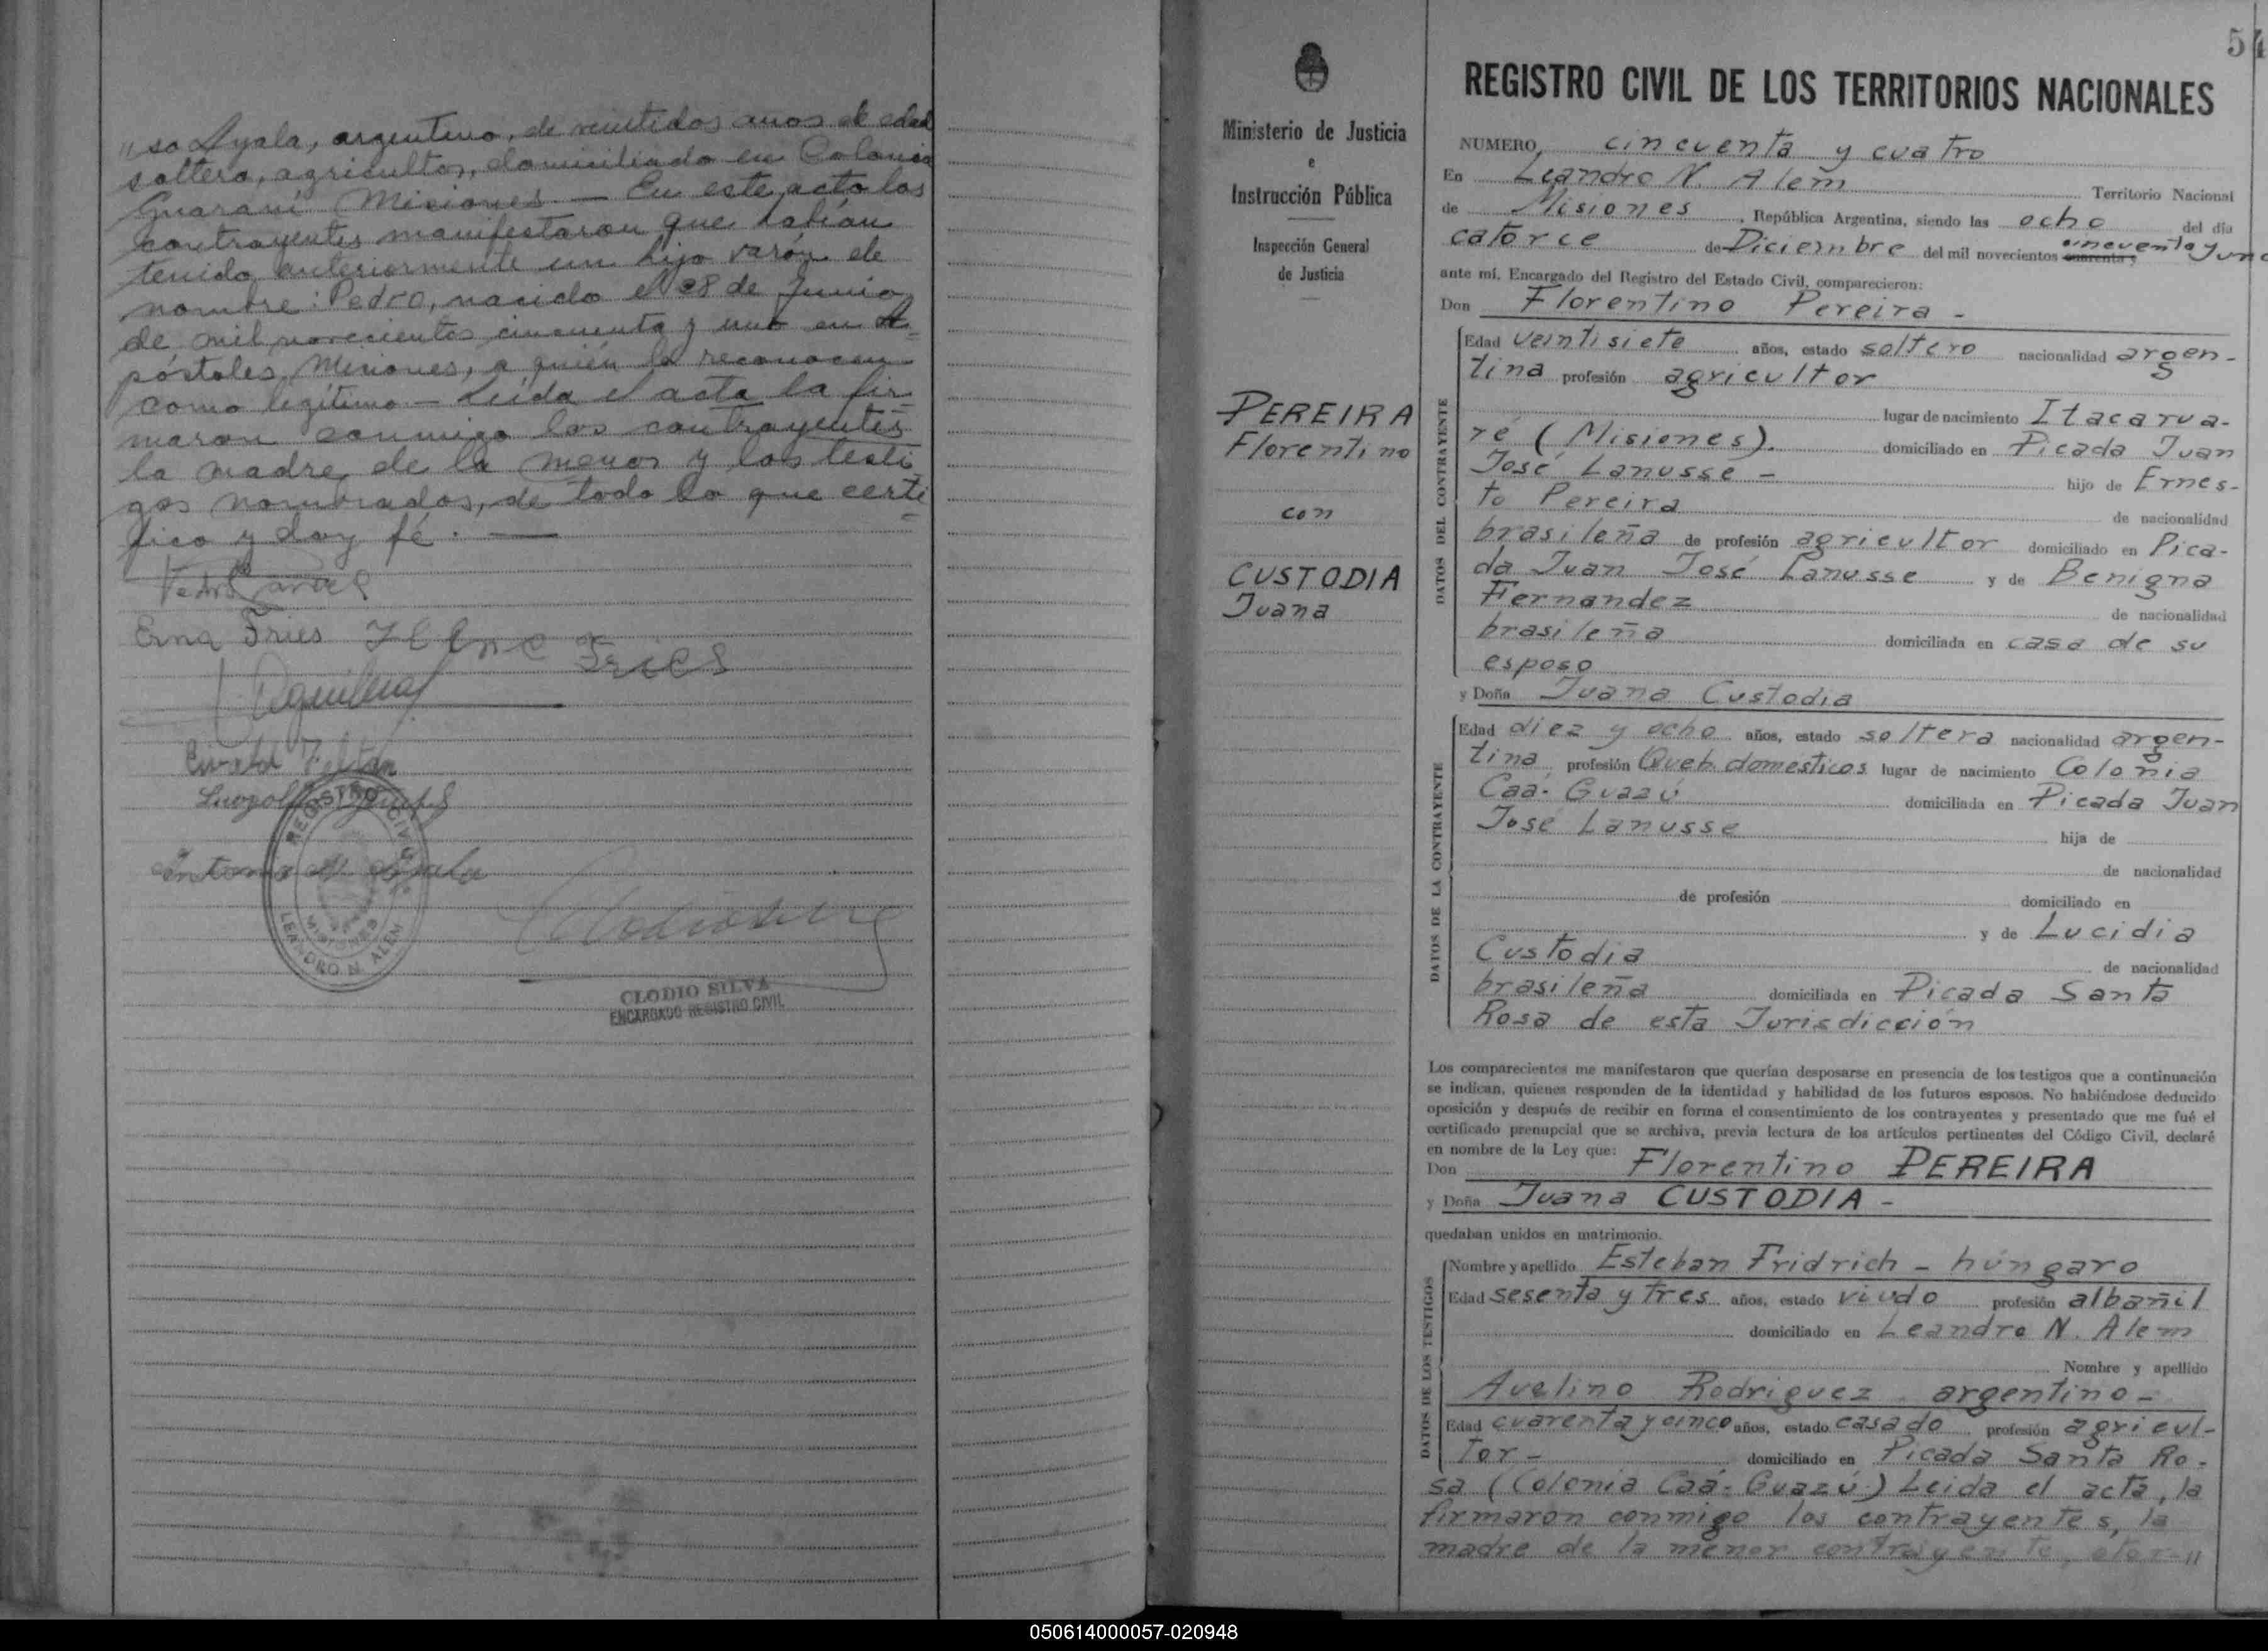 "so Ayala, argentino, de veintidos anos de edad
soltero, agricultor, domiciliado en Colonia
Guaraní Misiones — En este acto los
contrayentes manifestaron que habían
tenido anteriormente un hijo varón de
nombre: Pedro, nacido el 28 de Junio
de mil novecientos cincuenta y uno en A=
póstoles, Misiones, a quién lo reconocen
como legítimo — Leída el acta la fir-
maron conmigo los contrayentes
la madre de la menor y los testi
gos nombrados, de todo lo que certi=
fico y doy fé. —
Erna Fries
Fries
REGISTRO CIVIL
MISIONES
LEANDRO N. ALEM
CLODIO SILVA
ENCARGADO REGISTRO CIVIL
Ministerio de Justicia
e
Instrucción Pública
Inspección General
de Justicia
PEREIRA
Florentino
con
CUSTODIA
Juana
54
REGISTRO CIVIL DE LOS TERRITORIOS NACIONALES
NUMERO cincuenta y cuatro
En Leandro N. Alem Territorio Nacional
de Misiones, República Argentina, siendo las ocho del día
catorce de Diciembre del mil novecientos cuarenta y cincuenta y uno
ante mí. Encargado del Registro del Estado Civil, comparecieron:
Don Florentino Pereira -
DATOS DEL CONTRAYENTE
Edad veintisiete años, estado soltero nacionalidad argen-
tina profesión agricultor
lugar de nacimiento Itacarua-
ré (Misiones). domiciliado en Picada Juan
José Lanusse - hijo de Ernes-
to Pereira de nacionalidad
brasileña de profesión agricultor domiciliado en Pica-
da Juan José Lanusse y de Benigna
Fernandez de nacionalidad
brasileña domiciliada en casa de su
esposo
y Doña Juana Custodia
DATOS DE LA CONTRAYENTE
Edad diez y ocho años, estado soltera nacionalidad argen-
tina profesión Queh. domésticos lugar de nacimiento Colonia
Caá-Guazú domiciliada en Picada Juan
José Lanusse hija de
de nacionalidad
de profesión domiciliado en
y de Lucidia
Custodia de nacionalidad
brasileña domiciliada en Picada Santa
Rosa de esta Jurisdicción
Los comparecientes me manifestaron que querían desposarse en presencia de los testigos que a continuación
se indican, quienes responden de la identidad y habilidad de los futuros esposos. No habiéndose deducido
oposición y después de recibir en forma el consentimiento de los contrayentes y presentado que me fué el
certificado prenupcial que se archiva, previa lectura de los artículos pertinentes del Código Civil, declaré
en nombre de la Ley que:
Don Florentino PEREIRA
y Doña Juana CUSTODIA -
quedaban unidos en matrimonio.
DATOS DE LOS TESTIGOS
Nombre y apellido Esteban Fridrich - húngaro
Edad sesenta y tres años, estado viudo profesión albañil
domiciliado en Leandro N. Alem
Nombre y apellido
Avelino Rodriguez argentino -
Edad cuarenta y cinco años, estado casado profesión agricul-
tor - domiciliado en Picada Santa Ro-
sa (Colonia Caá-Guazú) Leida el acta, la
firmaron conmigo los contrayentes, la
madre de la menor contrayente, otor-"
050614000057-020948